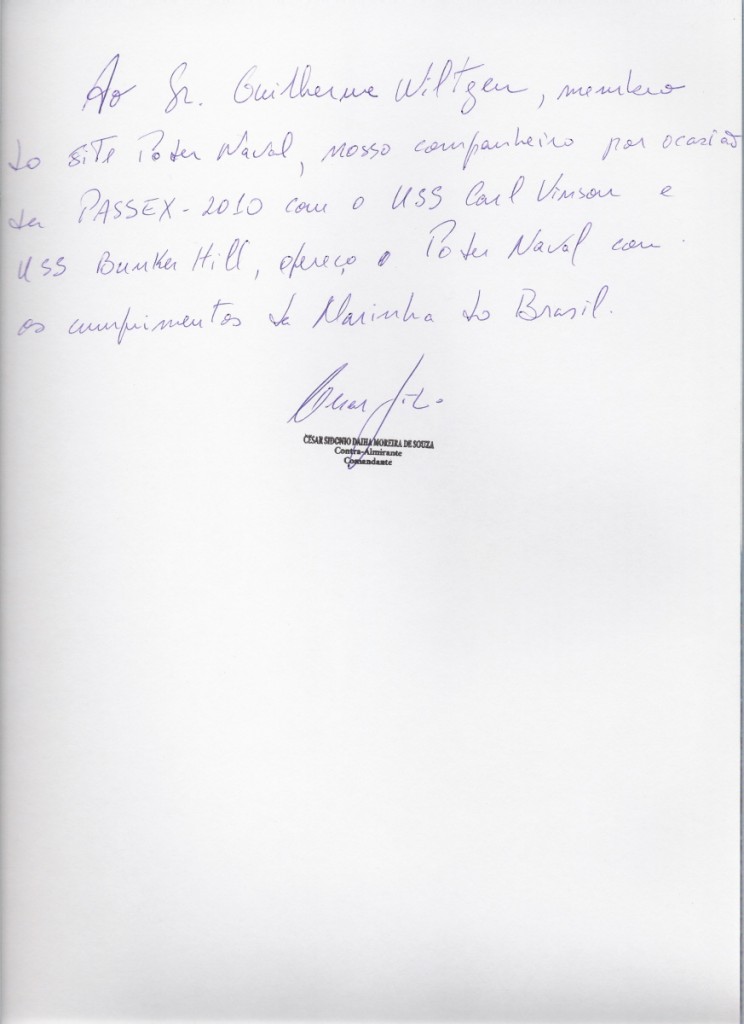 Ao Sr. Guilherme Wiltgen, membro
do site Poder Naval, nosso companheiro por ocasião
da PASSEX-2010 com o USS Carl Vinson e
USS Bunker Hill, ofereço o Poder Naval com
os cumprimentos da Marinha do Brasil.
CÉSAR SIDONIO DAIHA MOREIRA DE SOUZA
Contra-Almirante
Comandante